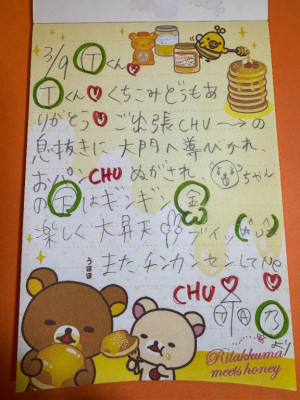 3/9 Tくん♡
Tくん♡くちこみどうもあ
りがとう♡ ご出張CHU→の
息抜きに大門へ導びかれ、
おパンCHUぬがされ、ちゃん
の玉はギンギン金
楽しく大昇天 ブイッ
うほほ
またチンカンセンしてNe
CHU♡ ♡
T A 乃より
Rilakkuma
meets honey